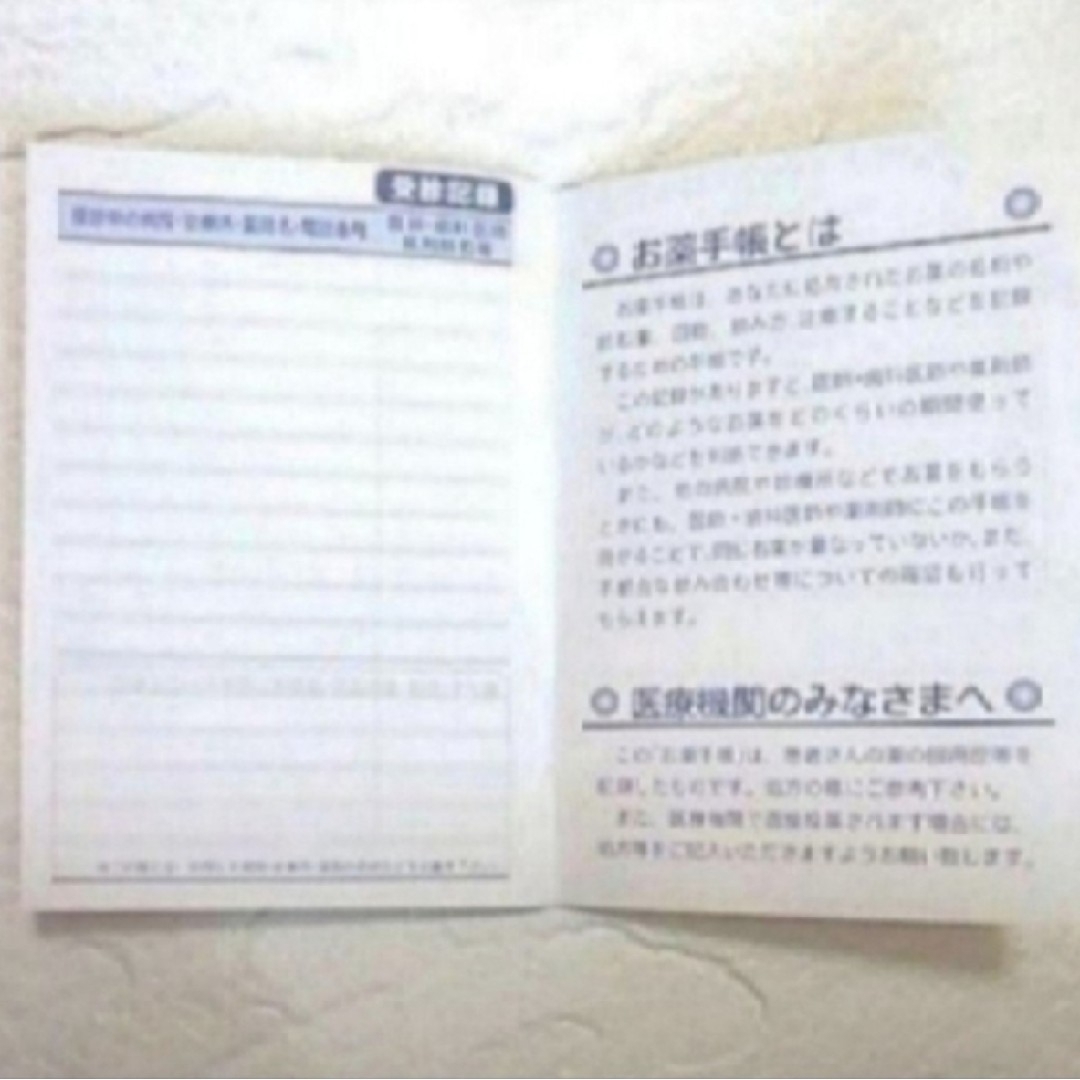 受診記録
お薬手帳とは
お薬手帳は、あなたに処方されたお薬の名前や
飲む量、回数、飲み方、注意することなどを記録
するための手帳です。
この記録がありますと、医師・歯科医師や薬剤師
が、どのようなお薬をどのくらいの期間使って
いるかなどを判断できます。
また、他の病院や診療所などでお薬をもらう
ときにも、医師・歯科医師や薬剤師にこの手帳を
見せることで、同じお薬が重なっていないか、また、
不都合な飲み合わせ等についての確認も行って
もらえます。
医療機関のみなさまへ
この「お薬手帳」は、患者さんの薬の服用歴等を
記録したものです。処方の際にご参考下さい。
また、医療機関で直接投薬されます場合には、
処方等をご記入いただきますようお願い致します。